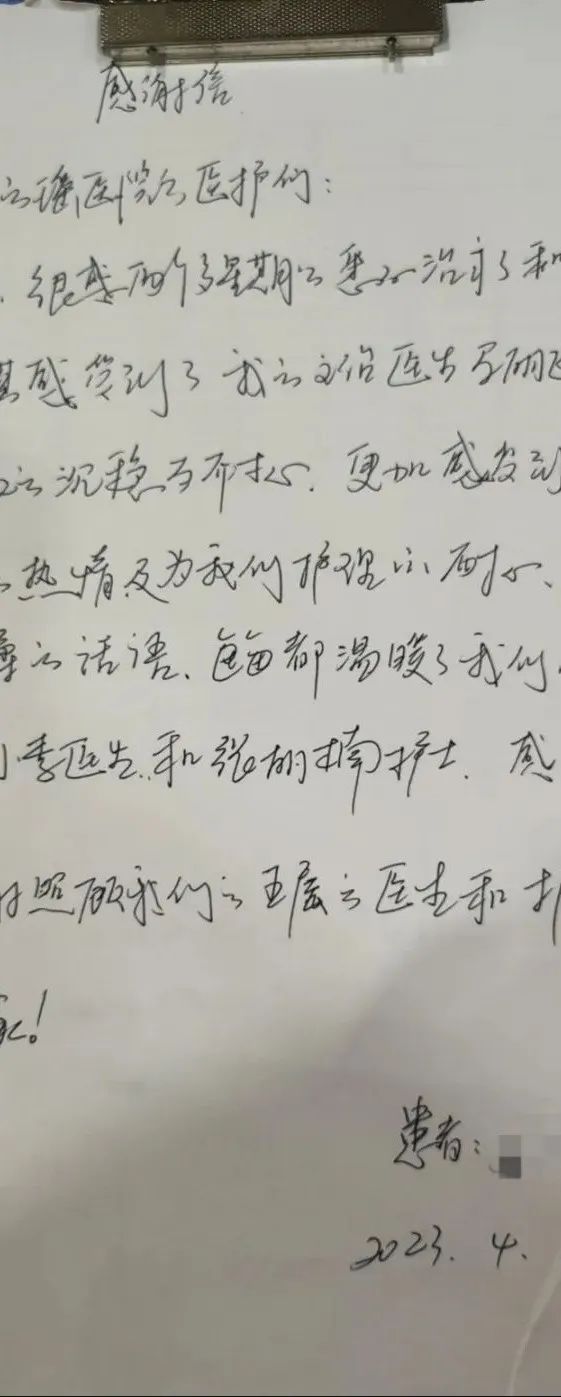 感谢信
医院的医护们：
很感 两个多星期的 治疗和
感觉到了我的主治医生
的沉稳与耐心.更加感受到
热情及为我们护理的耐心、
的话语、 都温暖了我们
季医生.和张 楠护士.感
照顾我们的五层的医生和护
!
患者：
2023.4.